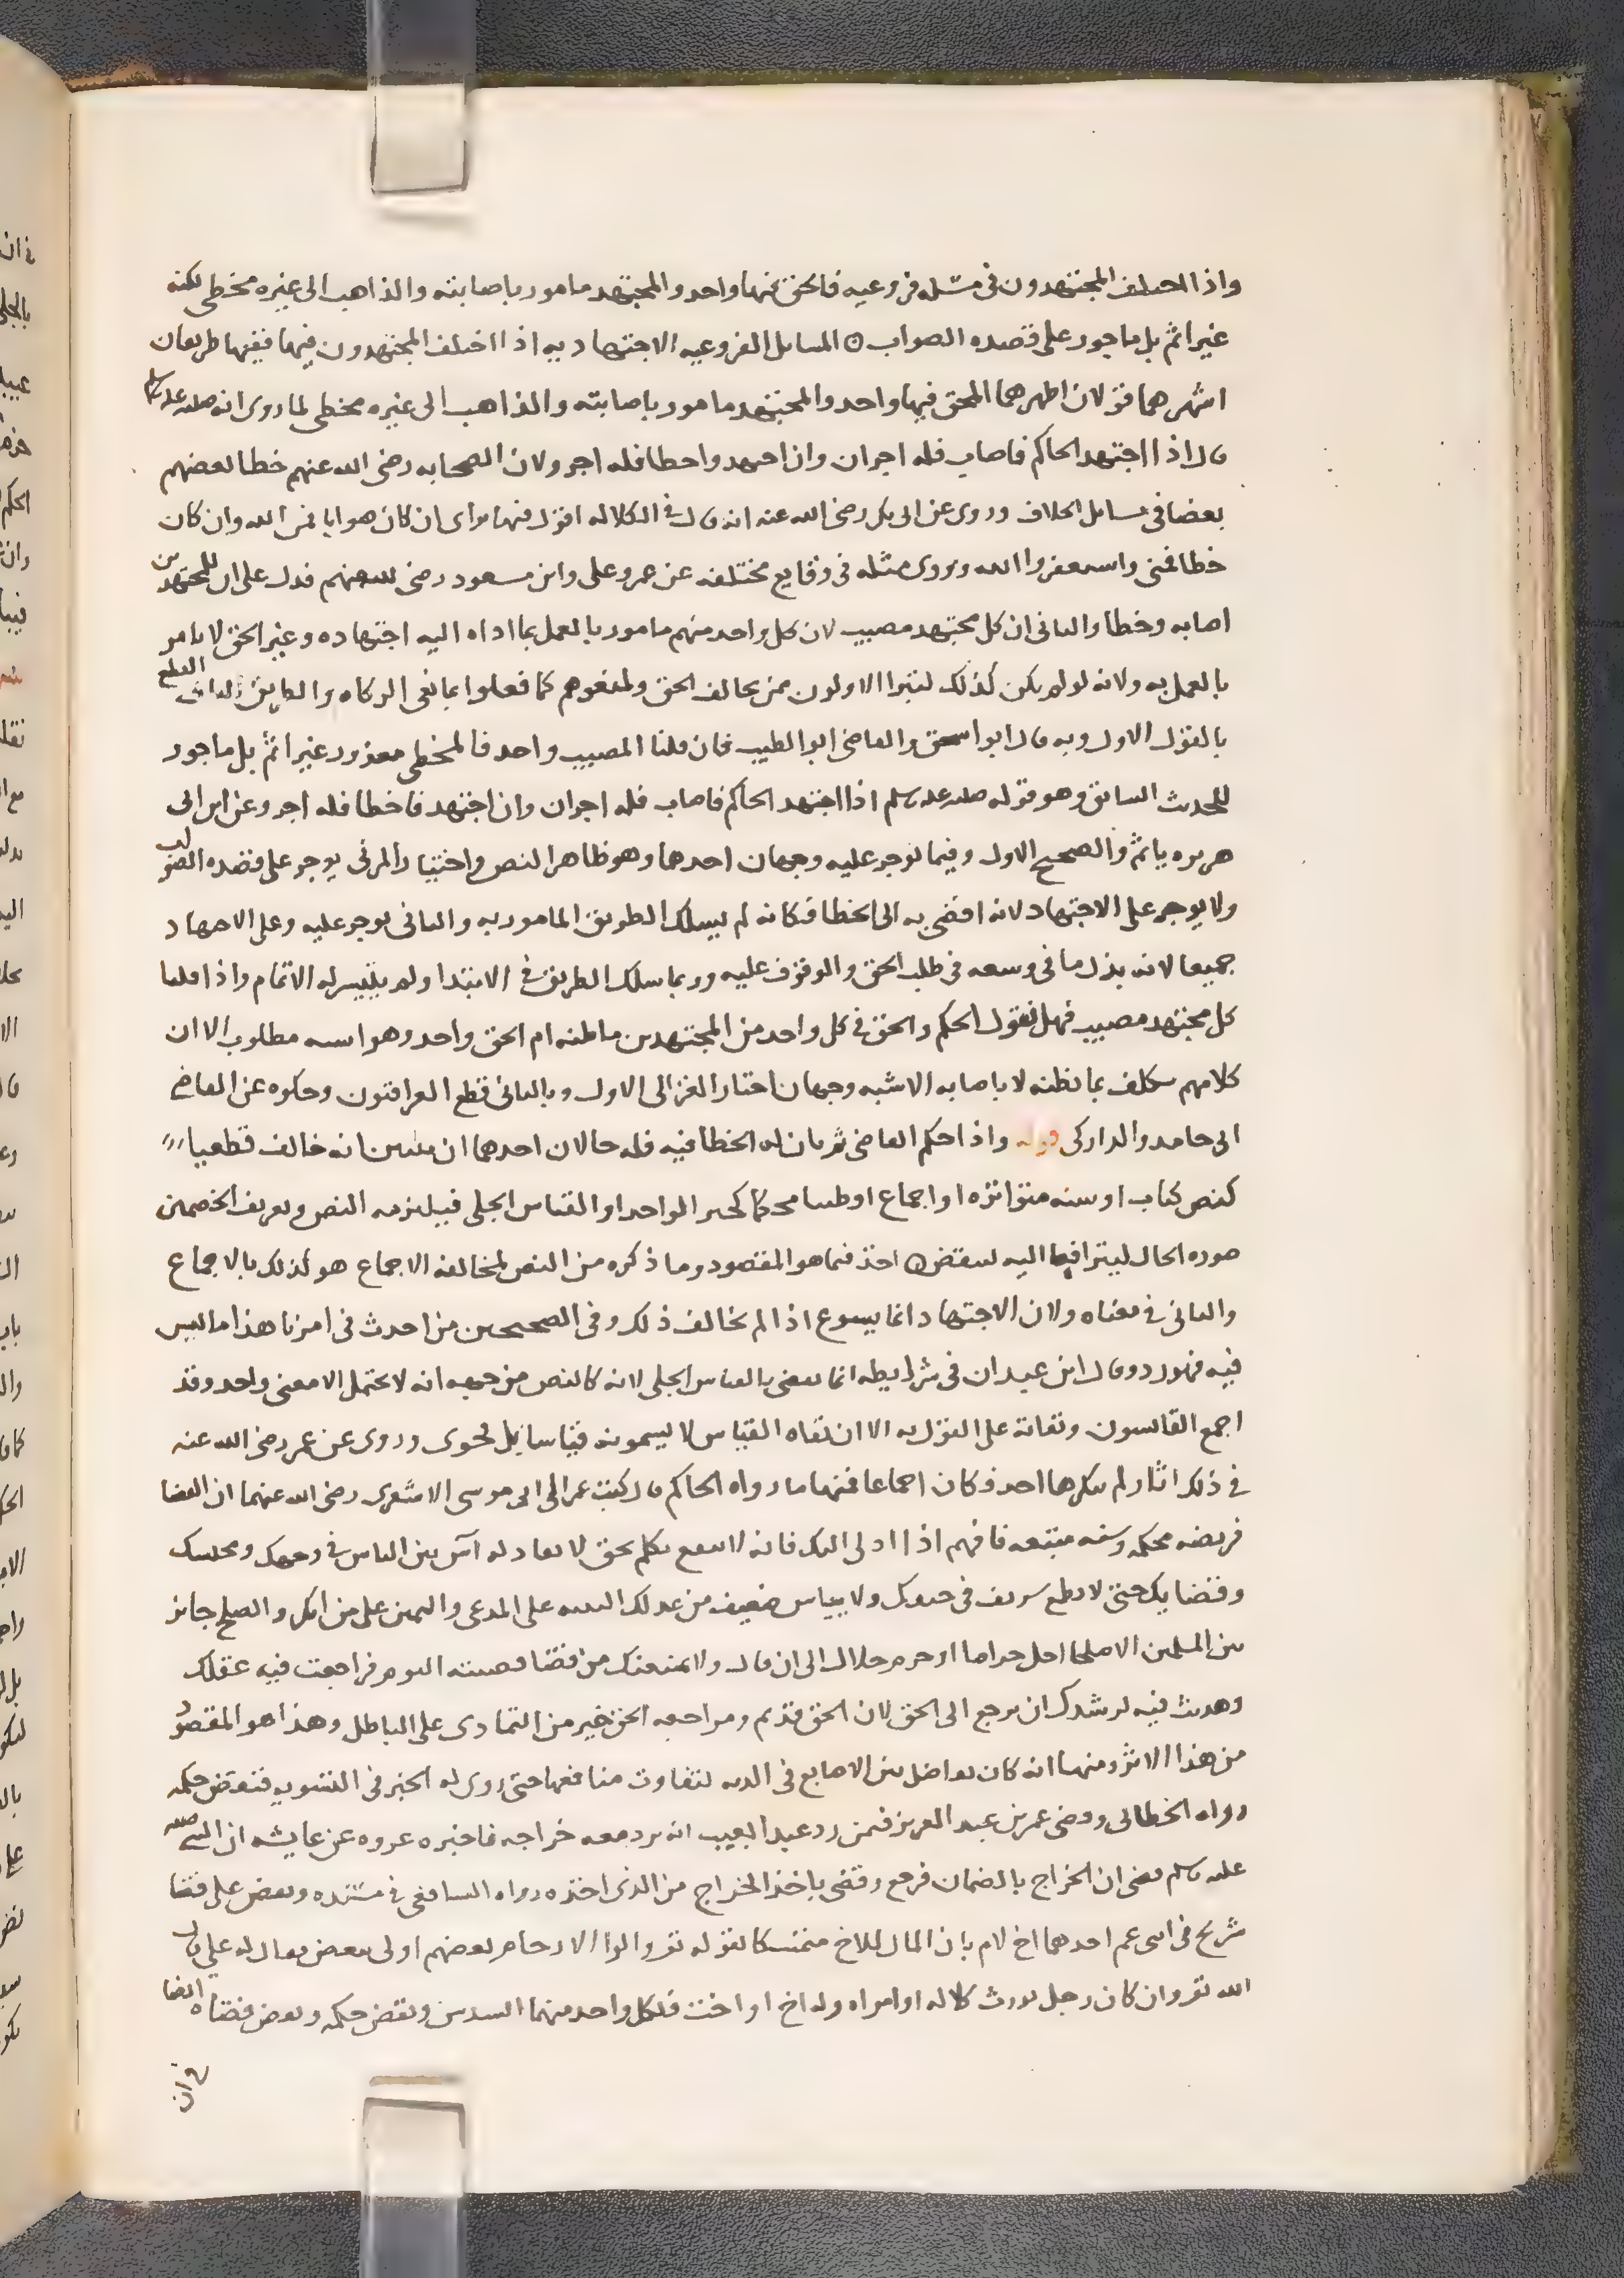 واذا اختلف المجتهدون في مسئله فروعيه فالحق فيها واحد والمجتهد مامور باصابته والذاهب الى غيره مخطى لكنه
غير اثم بل ماجور على قصده الصواب ۞ المسايل الفروعيه الاجتهاديه اذا اختلف المجتهدون فيها ففيها طريقان
اشهرهما قولان اظهرهما المحق فيها واحد والمجتهد مامور باصابته والذاهب الى غيره مخطى لما روى انه صلى الله عليه وسلم
قال اذا اجتهد الحاكم فاصاب فله اجران وان اجتهد واخطا فله اجر ولان الصحابه رضى الله عنهم خطا بعضهم
بعضا في مسايل الخلاف وروى عن ابى بكر رضى الله عنه انه قال في الكلاله اقول فيها براى ان كان صوابا فمن الله وان كان
خطا فمنى واستغفر الله ويروى مثله في وقايع مختلفه عن عمر وعلى وابن مسعود رضى الله عنهم فدل على ان للمجتهدين
اصابه وخطا والثانى ان كل مجتهد مصيب لان كل واحد منهم مامور بالعمل بما اداه اليه اجتهاده وغير الحق لا يامر
بالعمل به ولانه لو لم يكن كذلك لتبرا الاولون ممن يخالف الحق ولمنعوهم كما فعلوا بمانعى الزكاه والطريق الثانى القطع
بالقول الاول وبه قال ابو اسحق والقاضى ابو الطيب فان قلنا المصيب واحد فالمخطى معذور غير اثم بل ماجور
للحديث السابق وهو قوله صلى الله عليه وسلم اذا اجتهد الحاكم فاصاب فله اجران وان اجتهد فاخطا فله اجر وعن ابن ابى
هريره ياثم والصحيح الاول وفيما يوجر عليه وجهان احدهما وهو ظاهر النص واختيار المزنى يوجر على قصده الصواب
ولا يوجر على الاجتهاد لانه افضى به الى الخطا فكانه لم يسلك الطريق المامور به والثانى يوجر عليه وعلى الاجتهاد
جميعا لانه بذل ما في وسعه في طلب الحق والوقوف عليه وربما سلك الطريق في الابتدا ولم يتيسر له الاتمام واذا قلنا
كل مجتهد مصيب فهل نقول الحكم والحق في كل واحد من المجتهدين ما ظنه ام الحق واحد وهو اشبه مطلوب الا ان
كلا منهم مكلف بما يظنه لا باصابه الاشبه وجهان اختار الغزالى الاول وبالثانى قطع العراقيون وحكوه عن القاضى
ابى حامد والداركى قوله واذا حكم القاضى ثم بان له الخطا فيه فله حالان احدهما ان يتبين انه خالف قطعيا
كنص كتاب او سنه متواتره او اجماع او ظنيا محكما كخبر الواحد او القياس الجلى فيلزمه النقض وتعريف الخصمين
صوره الحال ليترافعا اليه لينقض ۞ اخذ فيما هو المقصود وما ذكره من النقض لمخالفه الاجماع هو كذلك بالاجماع
والثانى في معناه ولان الاجتهاد انما يسوغ اذا لم يخالف ذلك وفى الصحيحين من احدث في امرنا هذا ما ليس
فيه فهو رد وقال ابن عبدان في شرايطه انما نعنى بالقياس الجلى لانه كالنص من حيث انه لا يحتمل الا معنى واحد وقد
اجمع القايسون ونفاته على القول به الا ان نفاه القياس لا يسمونه قياسا بل فحوى وروى عن عمر رضى الله عنه
في ذلك اثار لم ينكرها احد فكان اجماعا فمنها ما رواه الحاكم قال كتب عمر الى ابى موسى الاشعرى رضى الله عنهما ان القضا
فريضه محكمه وسنه متبعه فافهم اذا ادلى اليك فانه لا ينفع تكلم بحق لا نفاد له آس بين الناس في وجهك ومجلسك
وقضايك حتى لا يطمع شريف في حيفك ولا يياس ضعيف من عدلك البينه على المدعى واليمين على من انكر والصلح جايز
بين المسلمين الا صلحا احل حراما او حرم حلالا الى ان قال ولا يمنعك من قضا قضيته اليوم فراجعت فيه عقلك
وهديت فيه لرشدك ان ترجع الى الحق لان الحق قديم ومراجعه الحق خير من التمادى على الباطل وهذا هو المقصود
من هذا الاثر ومنها انه كان يفاضل بين الاصابع في الديه لتفاوت منافعها حتى روى له الخبر في التسويه فنقض حكمه
رواه الخطابى وقضى عمر بن عبد العزيز فيمن رد عبدا بعيب انه يرد معه خراجه فاخبره عروه عن عايشه ان النبى صلى الله
عليه وسلم قضى ان الخراج بالضمان فرجع وقضى باخذ الخراج من الذى اخذه رواه الشافعى في مسنده ونقض على قضا
شريح في ابنى عم احدهما اخ لام بان المال للاخ متمسكا بقوله تع واولوا الارحام بعضهم اولى ببعض فقال له على قال
الله تع وان كان رجل يورث كلاله او امراه وله اخ او اخت فلكل واحد منهما السدس ونقض حكمه ونقض قضاه القضا